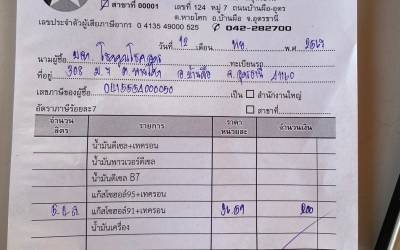 สาขาที่ 00001
เลขที่ 124 หมู่ 7 ถนนบ้านผือ-อุดร
ต.หายโศก อ.บ้านผือ จ.อุดรธานี
เลขประจำตัวผู้เสียภาษีอากร 0 4135 49000 525 042-282700
วันที่ 12 เดือน พ.ศ. 2567
นามผู้ซื้อ ทะเบียนรถ
ที่อยู่ 308 ม.4 ต.หายโศก อ.บ้านผือ จ.อุดรธานี 41160
เลขภาษีของผู้ซื้อ เป็น สำนักงานใหญ่
อัตราภาษีร้อยละ7 สาขาที่
จำนวนลิตร รายการ ราคาหน่วยละ จำนวนเงิน
น้ำมันดีเซล+เทครอน
น้ำมันพาวเวอร์ดีเซล
น้ำมันดีเซล B7
แก๊สโซฮอล์95+เทครอน
แก๊สโซฮอล์91+เทครอน 200
น้ำมันเครื่อง